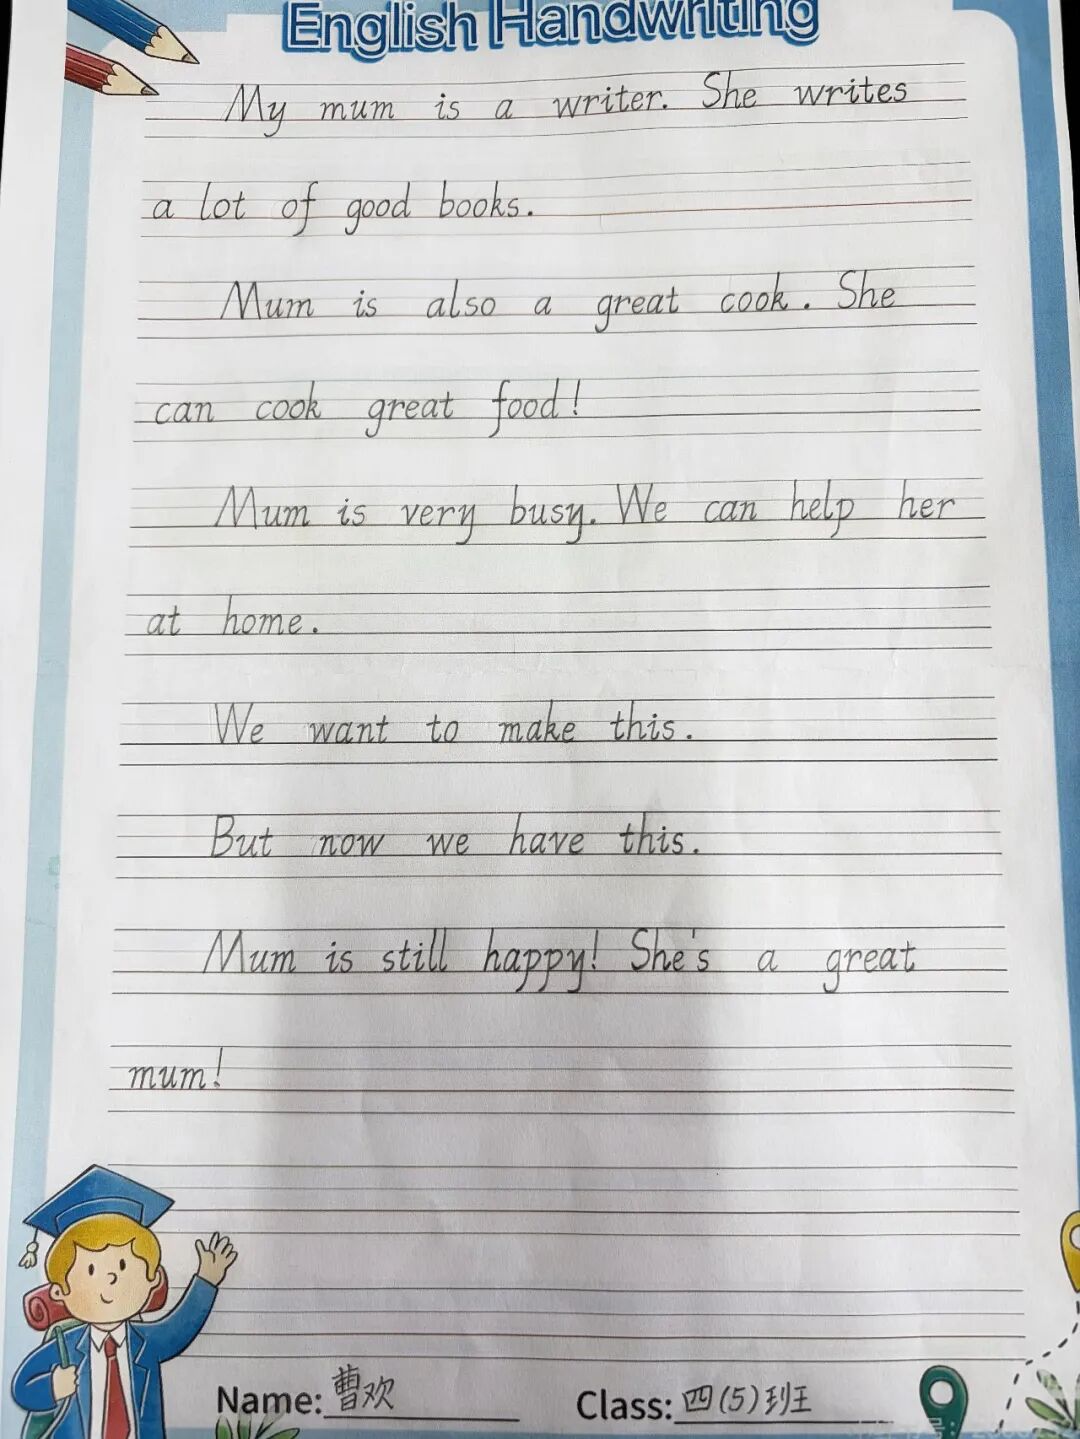 English Handwriting
My mum is a writer. She writes
a lot of good books.
Mum is also a great cook. She
can cook great food!
Mum is very busy. We can help her
at home.
We want to make this.
But now we have this.
Mum is still happy! She's a great
mum!
Name: 曹欢 Class: 四(5)班